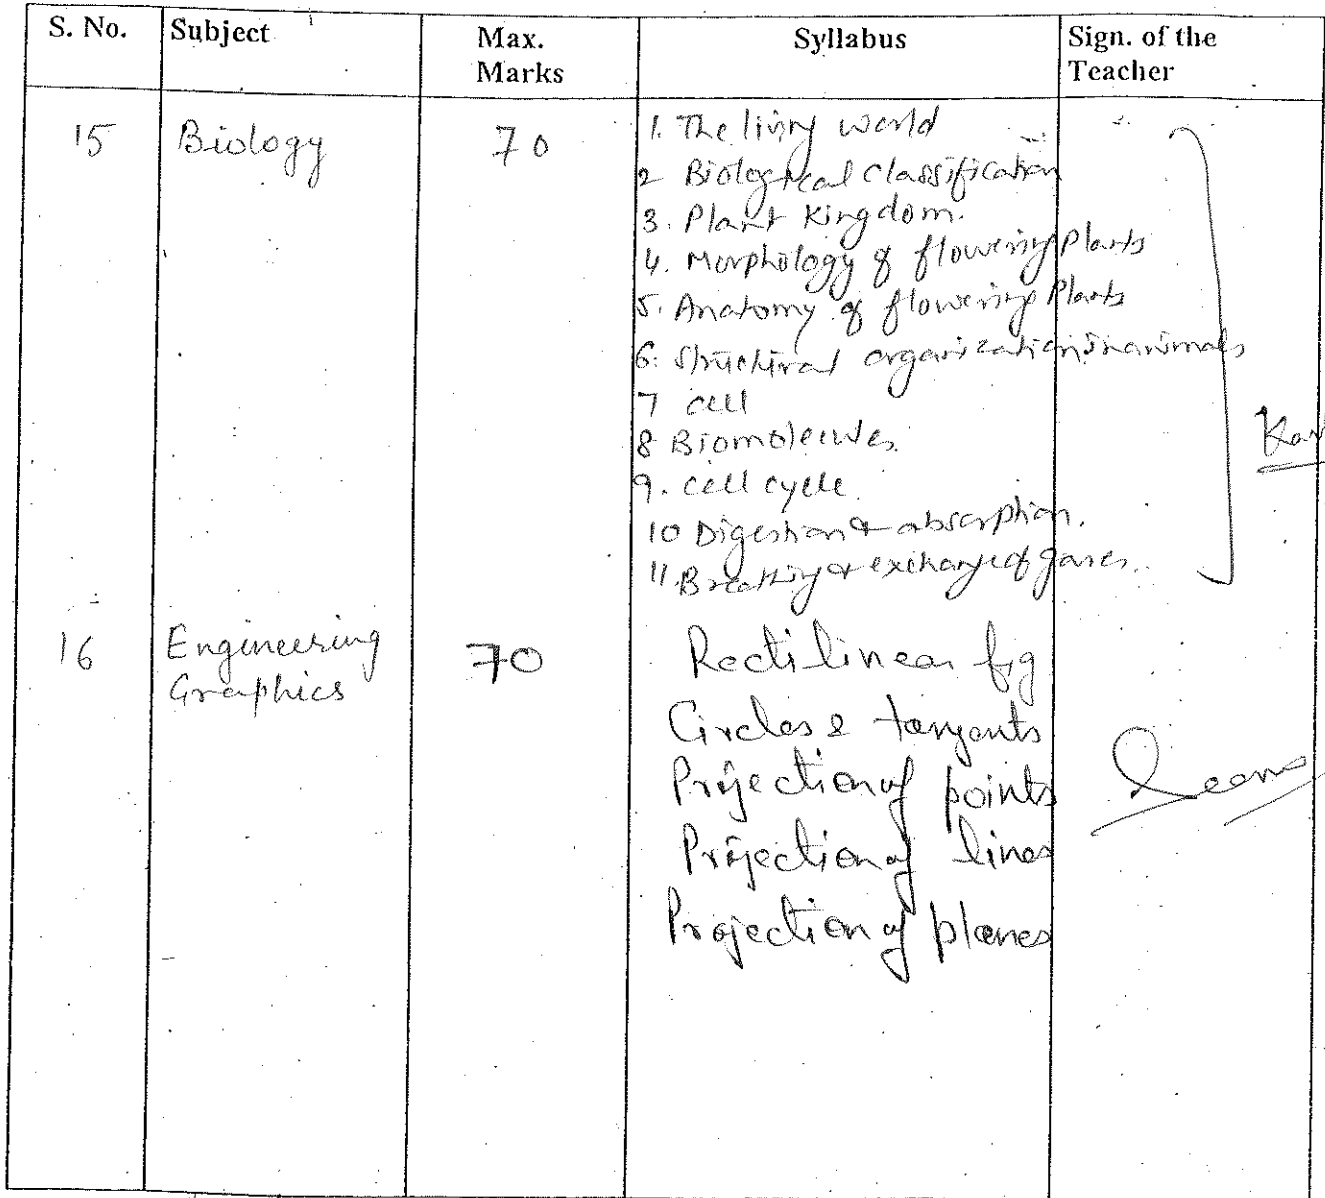 S. No. Subject Max. Marks Syllabus Sign. of the Teacher
15 Biology 70 1. The living world
2 Biological classification
3. Plant Kingdom.
4. Morphology of flowering Plants
5. Anatomy of flowering Plants
6. Structural organization in animals
7 cell
8 Biomolecules.
9. cell cycle.
10 Digestion & absorption.
11. Breathing & exchange of gases.
16 Engineering Graphics 70 Rectilinear fig
Circles & tangents
Projection of points
Projection of lines
Projection of planes